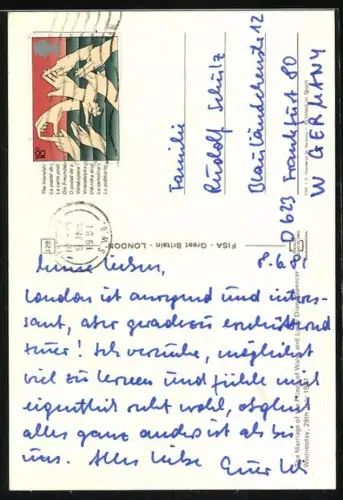 Meine Lieben,
8.6.81
London ist anregend und interes-
sant, aber geradezu erschütternd
teuer! Ich versuche, möglichst
viel zu lernen und fühle mich
eigentlich recht wohl, obgleich
alles ganz anders ist als bei
uns. Alles Liebe
Familie
Rudolf Schulz
Blauländchenstr. 12
D 623 Frankfurt 80
W GERMANY
FISA - Great Britain - LONDON
The Marriage of the Prince of Wales and Lady Diana Spencer
Wednesday, 29th July 1981
18p
1981
S.W.